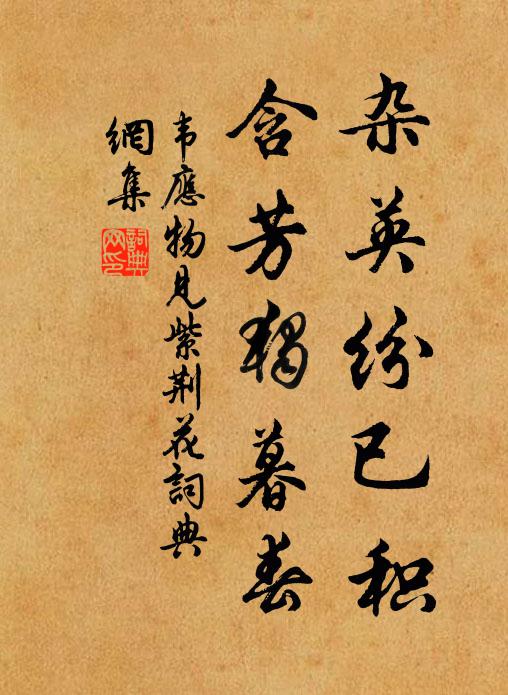 杂英纷已积
含芳独暮春
韦應物见紫荆花詞典
網集
詞典網印